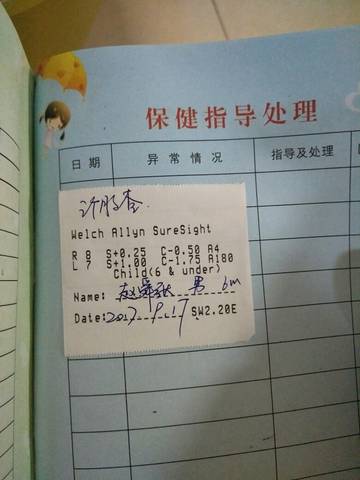 保健指导处理
日期 异常情况 指导及处理
Welch Allyn SureSight
R 8 S+0.25 C-0.50 A4
L 7 S+1.00 C-1.75 A180
Child(6 & under)
Name: 赵 男 6m
Date: 2017.9.17 SW2.20E